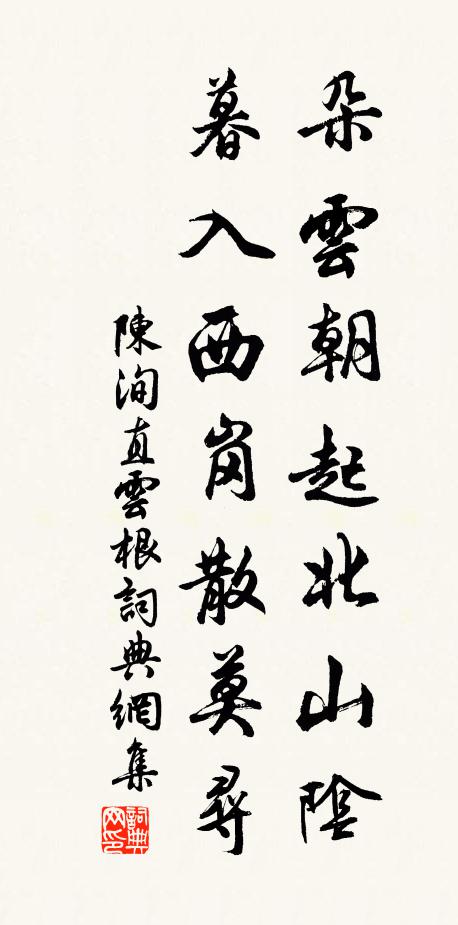 朵雲朝起北山陰
暮入西崗散莫尋
陳洵直雲根詞典網集
詞典网印